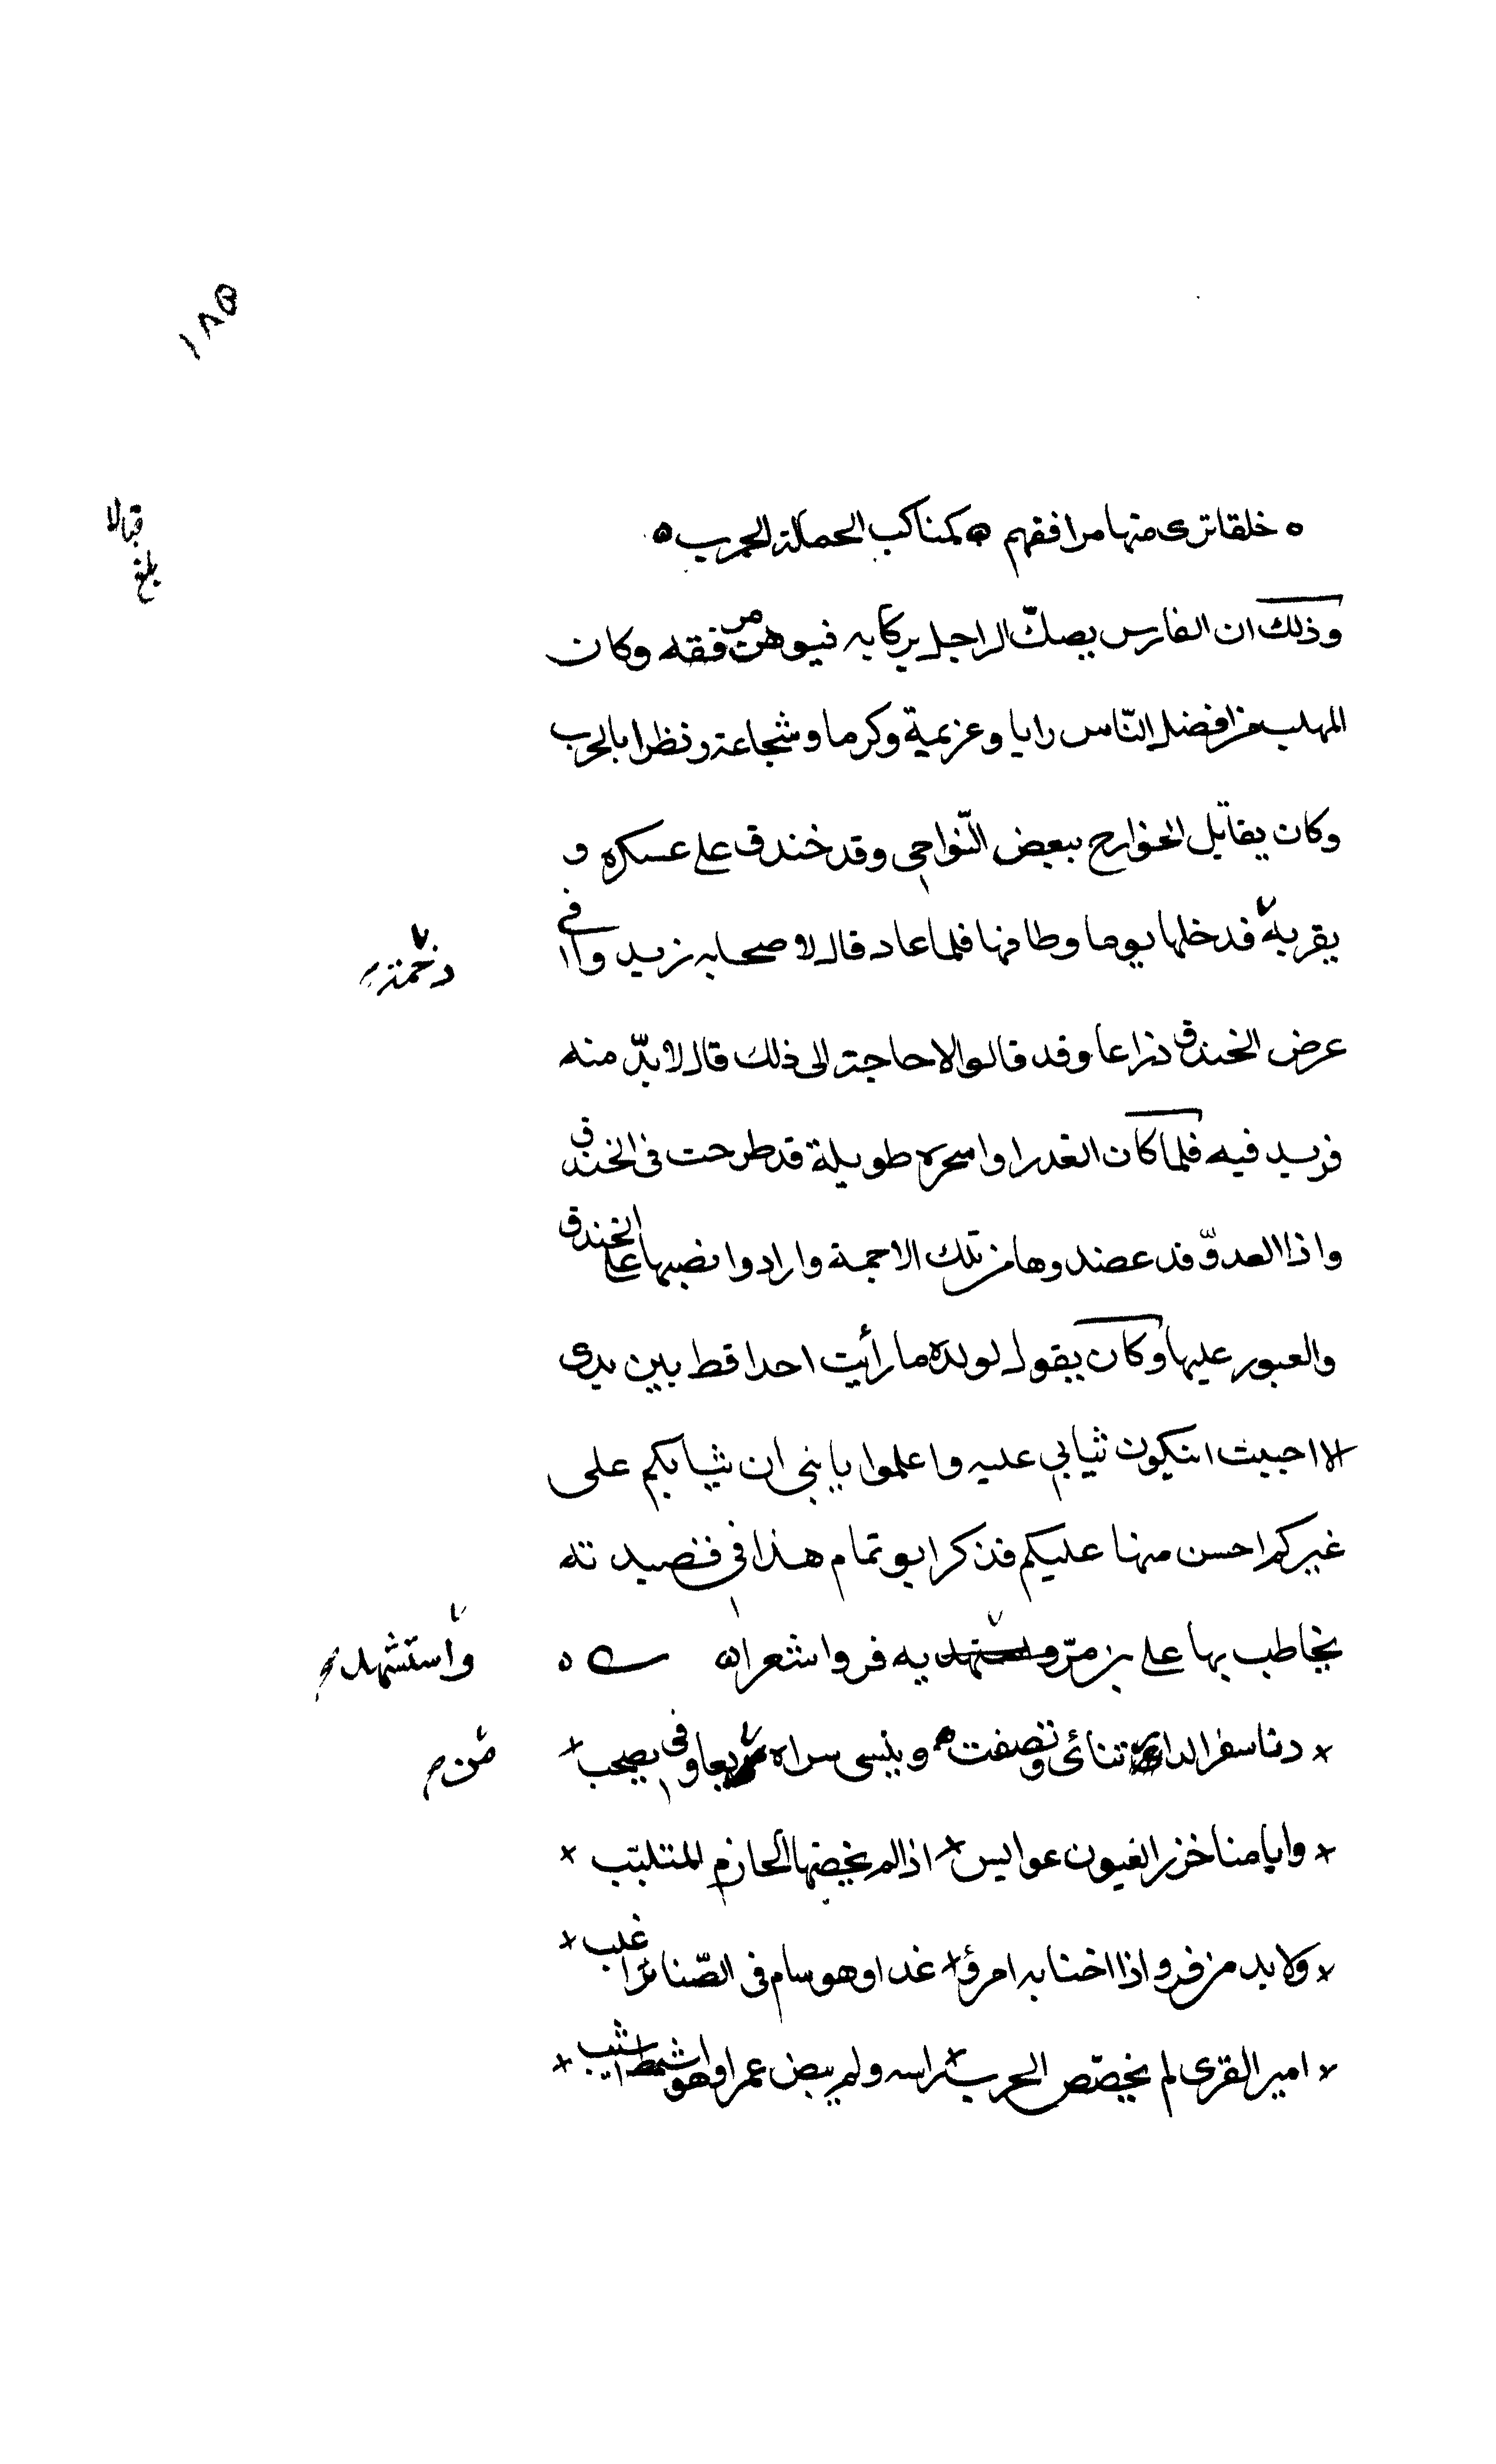 ١٨٥
خلقا ترى منها مرافقهم ه كمناكب الحمالة الجرب ه
قبالا
بلغ
وذلك ان الفارس يصكّ الراجل بركابه فيوهن مرفقه وكان
المهلب من افضل النّاس رايا وعزيمة وكرما وشجاعة ونظرا بالحرب
وكان يقاتل الخوارج ببعض النّواحى وقد خندق على عسكره و
بقربه فدخلها يوما وطافها فلما عاد قال لاصحابه نزيد فى
عرض الخندق ذراعا وقد قالوا لا حاجة الى ذلك قال لا بدّ منه
فزيد فيه فلما كان الغد راوا سحره طويلة قد طرحت فى الخندق
واذا العدوّ قد عضدوها من تلك الاجمة وارادوا نصبها على الخندق
والعبور عليها وكان يقول لولده ما رأيت احدا قط بين يدى
الا احببت ان تكون ثيابي عليه واعلموا يا بنى ان ثيابكم على
غيركم احسن منها عليكم فذكر ابو تمام هذا فى قصيدته
يخاطب بها على بن مرّ به فروا شعرا ه
واستشهد
دنا سفر الدار تنائى وتصفت وينسى سراه وفى يصحب
من
وايامنا خزر العيون عوابس اذا لم يخضها الحازم المتلبّب
ولا بد من فرو اذا اختابه امرؤ غدا وهو سام فى الصّنابر اغلب
امير القرى لم الحرب راسه ولم يبض عمرا وهو اشمط اشيب